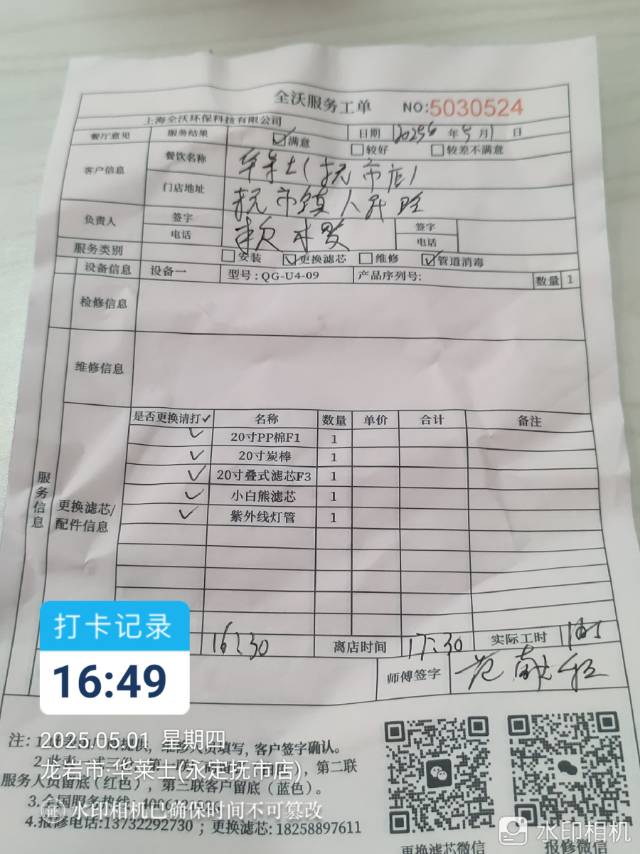 全沃服务工单 NO:5030524
上海全沃环保科技有限公司
餐厅意见 服务结果 ☑满意 日期 2025年5月1日
☐较好 ☐较差不满意
客户信息 餐饮名称 华莱士(抚市店)
门店地址 抚市镇人民路
负责人 签字 签字
电话 电话
服务类别 ☐安装 ☑更换滤芯 ☐维修 ☑管道消毒
设备信息 设备一 型号:QG-U4-09 产品序列号: 数量 1
检修信息
维修信息
服务信息
更换滤芯/配件信息
是否更换请打✓ 名称 数量 单价 合计 备注
✓ 20寸PP棉F1 1
✓ 20寸炭棒 1
✓ 20寸叠式滤芯F3 1
✓ 小白熊滤芯 1
✓ 紫外线灯管 1
打卡记录
16:49
16:30 离店时间 17:30 实际工时
师傅签字
2025.05.01 星期四
龙岩市·华莱士(永定抚市店)
注:1. 填写,客户签字确认。
2. 第二联
服务人员留底(红色),第三联客户留底(蓝色)。
3.全国服务
水印相机已确保时间不可篡改
4.报修电话:13732292730;更换滤芯:18258897611
更换滤芯微信 报修微信
水印相机